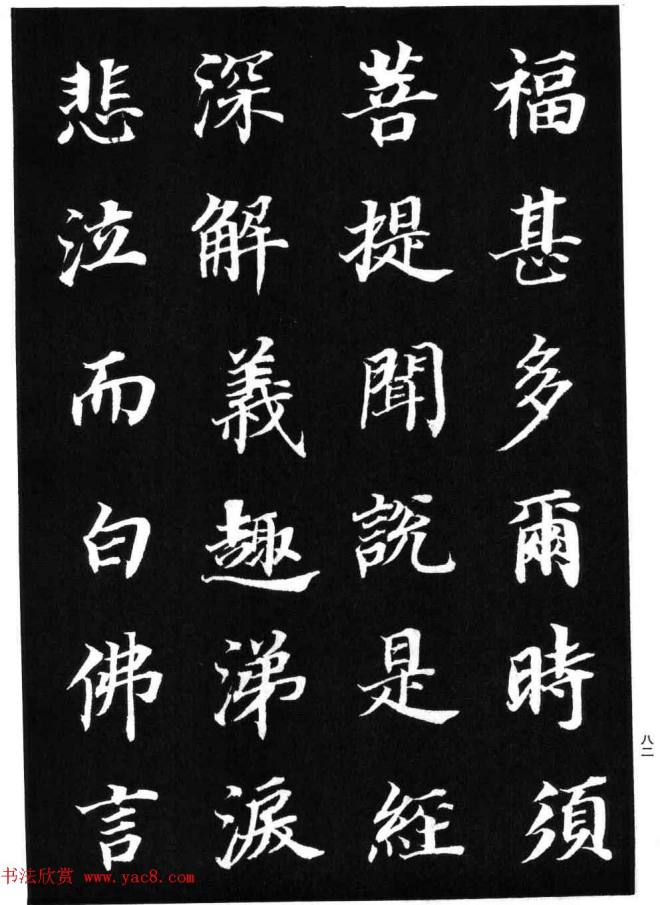 福甚多爾時須
菩提聞說是經
深解義趣涕淚
悲泣而白佛言
八二
书法欣赏 www.yac8.com